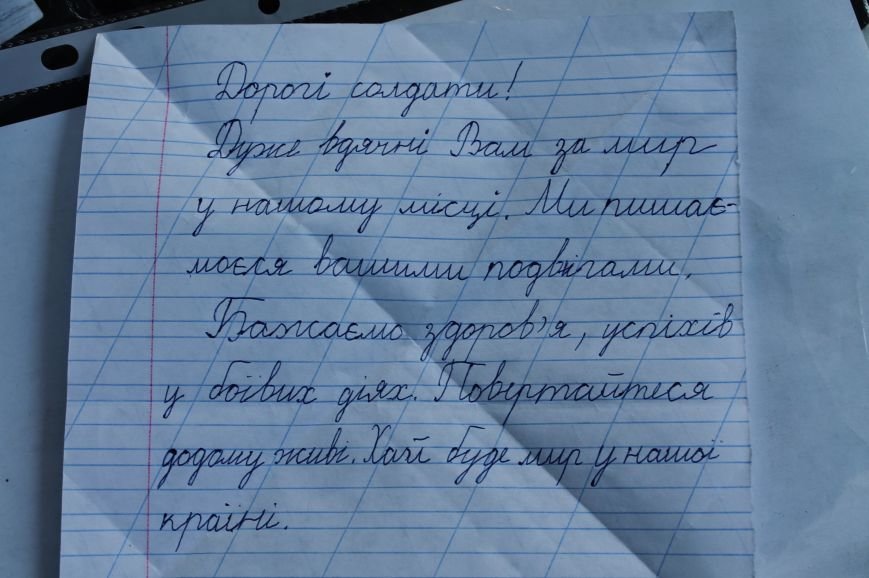 Дорогі солдати!
Дуже вдячні Вам за мир
у нашому місці. Ми пишає-
моєся вашими подвігами.
Бажаємо здоров'я, успіхів
у боївих діях. Повертайтеся
додому живі. Хай буде мир у нашої
країні.